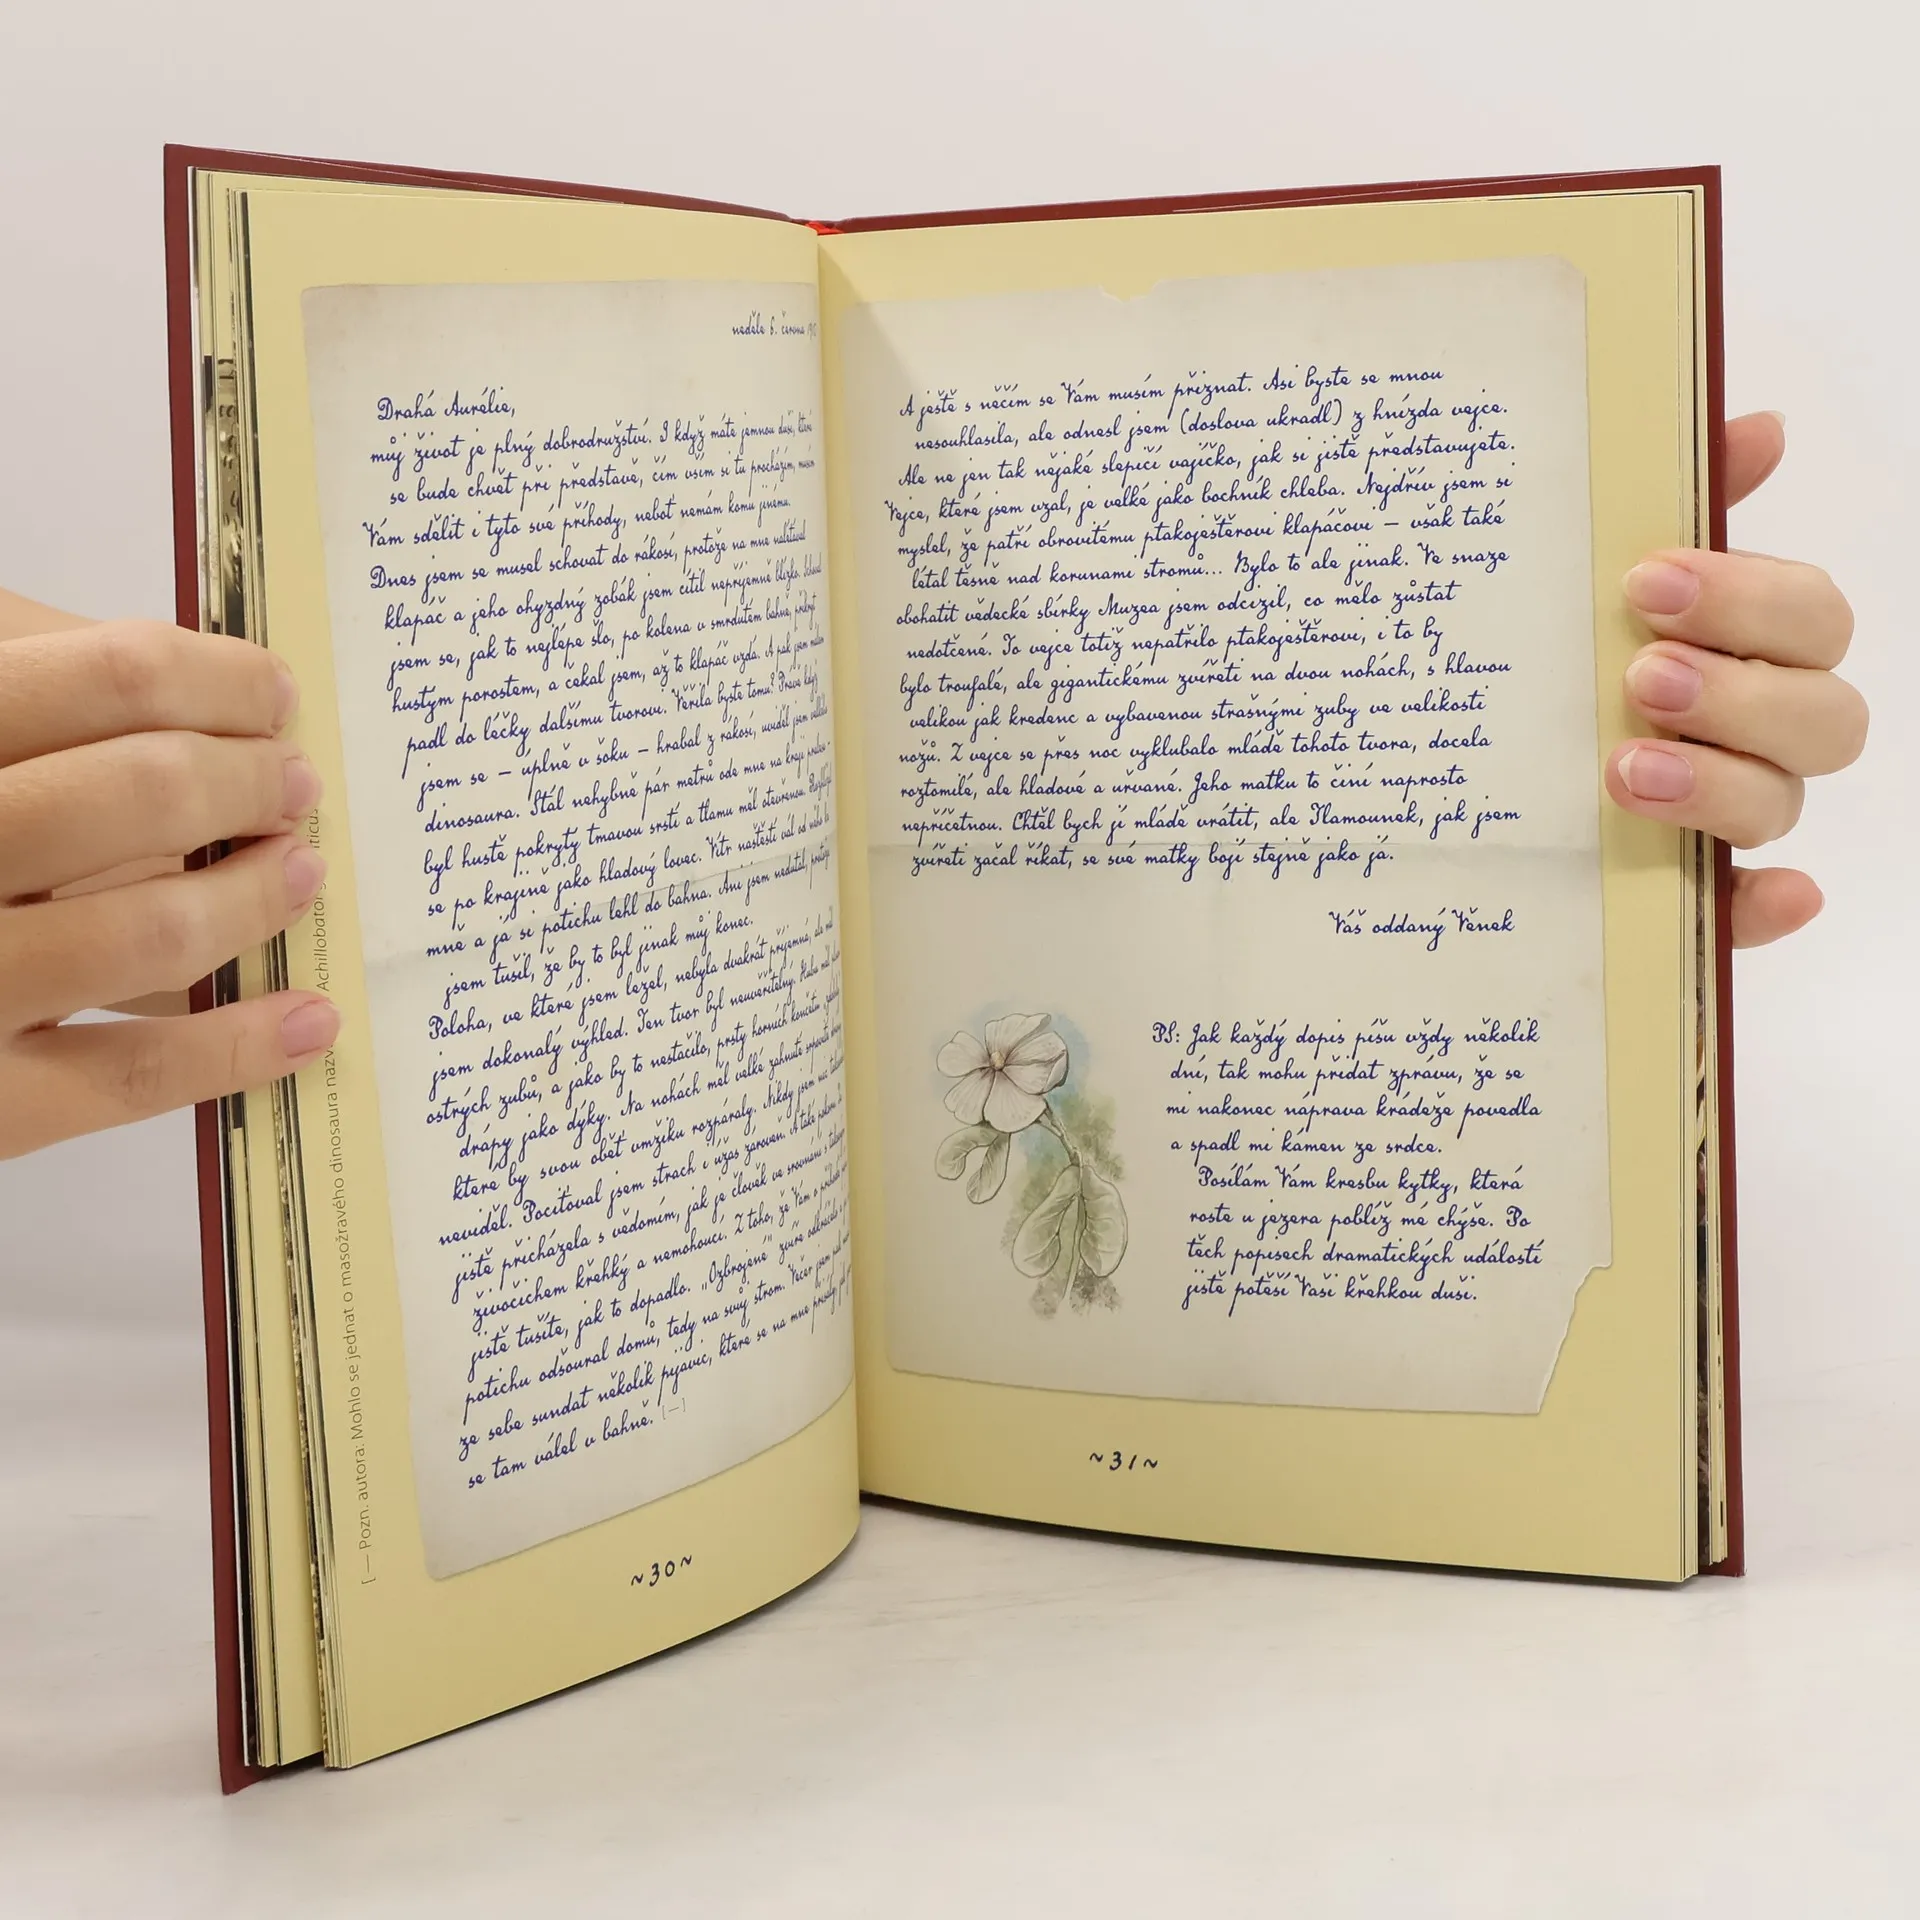 neděle 6. června
Drahá Aurélie,
můj život je plný dobrodružství. I když máte jemnou duši, která
se bude chvět při představě, čím vším si tu procházím, musím
Vám sdělit i tyto své příhody, neboť nemám komu jinému.
Dnes jsem se musel schovat do rákosí, protože na mne nalétával
klapáč a jeho ohyzdný zobák jsem cítil nepříjemně blízko. Schoval
jsem se, jak to nejlépe šlo, po kolena v smrdutém bahně, přikryt
hustým porostem, a čekal jsem, až to klapáč vzdá. A pak jsem málem
padl do léčky dalšímu tvorovi. Věřila byste tomu? Právě když
jsem se – úplně v šoku – hrabal z rákosí, uviděl jsem velkého
dinosaura. Stál nehybně pár metrů ode mne na kraji
byl hustě pokrytý tmavou srstí a tlamu měl otevřenou. Rozhlížel
se po krajině jako hladový lovec. Vítr naštěstí vál od něho ke
mně a já si potichu lehl do bahna. Ani jsem nedutal, protože
jsem tušil, že by to byl jinak můj konec.
Poloha, ve které jsem ležel, nebyla dvakrát příjemná, ale měl
jsem dokonalý výhled. Ten tvor byl neuvěřitelný. Hubu měl plnou
ostrých zubů, a jako by to nestačilo, prsty horních končetin
drápy jako dýky. Na nohách měl velké zahnuté
které by svou oběť vmžiku rozpáraly. Nikdy jsem nic takového
neviděl. Pociťoval jsem strach i úžas zároveň. A také pokora
jistě přicházela s vědomím, jak je člověk ve srovnání s takovým
živočichem křehký a nemohoucí. Z toho, že Vám o příhodě
jistě tušíte, jak to dopadlo. „Ozbrojené" zvíře odkráčelo a
potichu odšoural domů, tedy na svůj strom. Večer jsem pak
ze sebe sundat několik pijavic, které se na mne přisály, když jsem
se tam válel v bahně. [—]
[ — Pozn. autora: Mohlo se jednat o masožravého dinosaura Achillobator
~30~
A ještě s něčím se Vám musím přiznat. Asi byste se mnou
nesouhlasila, ale odnesl jsem (doslova ukradl) z hnízda vejce.
Ale ne jen tak nějaké slepičí vajíčko, jak si jistě představujete.
Vejce, které jsem vzal, je velké jako bochník chleba. Nejdřív jsem si
myslel, že patří obrovitému ptakoještěrovi klapáčovi – však také
létal těsně nad korunami stromů... Bylo to ale jinak. Ve snaze
obohatit vědecké sbírky Muzea jsem odcizil, co mělo zůstat
nedotčené. To vejce totiž nepatřilo ptakoještěrovi, i to by
bylo troufalé, ale gigantickému zvířeti na dvou nohách, s hlavou
velikou jak kredenc a vybavenou strašnými zuby ve velikosti
nožů. Z vejce se přes noc vyklubalo mládě tohoto tvora, docela
roztomilé, ale hladové a uřvané. Jeho matku to činí naprosto
nepříčetnou. Chtěl bych jí mládě vrátit, ale Tlamounek, jak jsem
zvířeti začal říkat, se své matky bojí stejně jako já.
Váš oddaný Věnek
PS: Jak každý dopis píšu vždy několik
dní, tak mohu přidat zprávu, že se
mi nakonec náprava krádeže povedla
a spadl mi kámen ze srdce.
Posílám Vám kresbu kytky, která
roste u jezera poblíž mé chýše. Po
těch popisech dramatických událostí
jistě potěší Vaši křehkou duši.
~31~